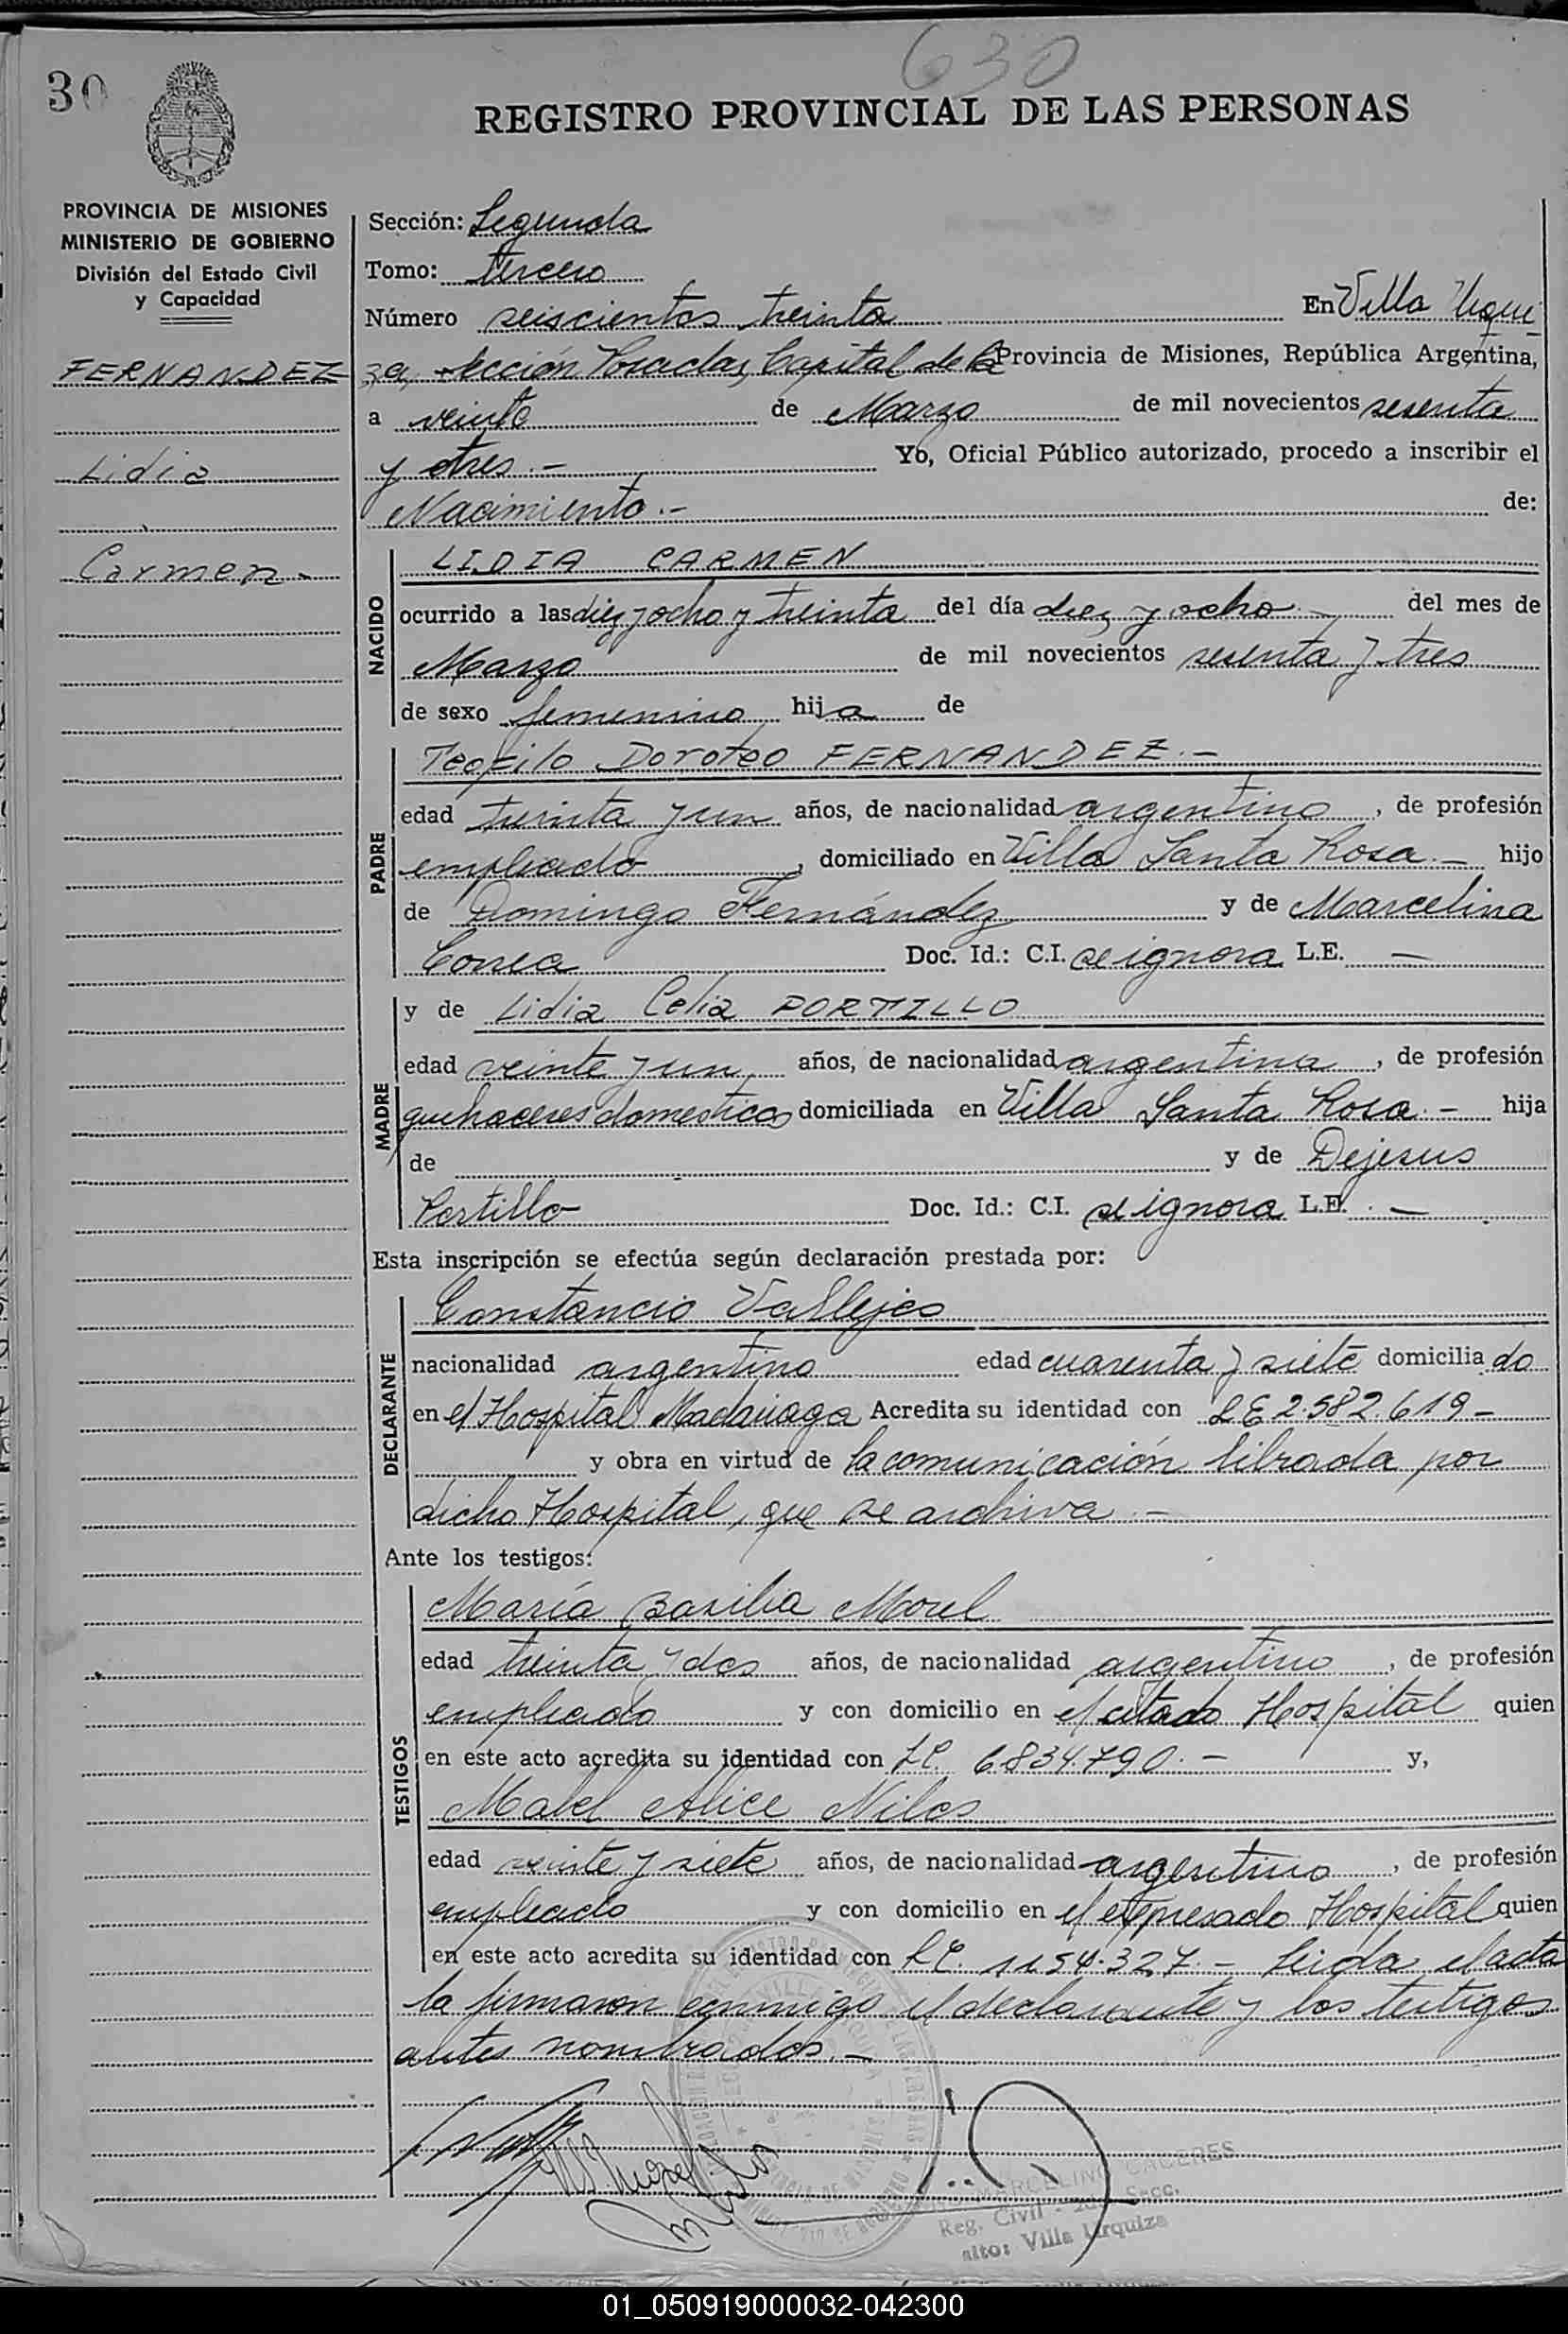 630
30
REGISTRO PROVINCIAL DE LAS PERSONAS
PROVINCIA DE MISIONES
MINISTERIO DE GOBIERNO
División del Estado Civil
y Capacidad
FERNANDEZ
Lidia
Carmen.-
Sección: Segunda
Tomo: tercero
Número seiscientos treinta En Villa Urqui
za, sección Posadas, Capital de la Provincia de Misiones, República Argentina,
a veinte de Marzo de mil novecientos sesenta
y tres.- Yo, Oficial Público autorizado, procedo a inscribir el
Nacimiento.- de:
NACIDO
LIDIA CARMEN
ocurrido a las diez y ocho y treinta del día diez y ocho.- del mes de
Marzo de mil novecientos sesenta y tres
de sexo femenino hija de
PADRE
Teofilo Doroteo FERNANDEZ.-
edad treinta y un años, de nacionalidad argentino, de profesión
empleado, domiciliado en Villa Santa Rosa.- hijo
de Domingo Fernández y de Marcelina
Correa Doc. Id.: C.I. se ignora L.E. —
MADRE
y de Lidia Celia PORTILLO
edad veinte y un años, de nacionalidad argentina, de profesión
quehaceres domesticos domiciliada en Villa Santa Rosa.- hija
de y de Dejesus
Portillo Doc. Id.: C.I. se ignora L.E. . —
Esta inscripción se efectúa según declaración prestada por:
DECLARANTE
Constancio Vallejos
nacionalidad argentino edad cuarenta y siete domiciliado
en el Hospital Madariaga Acredita su identidad con LE 2.582.619-
y obra en virtud de la comunicación librada por
dicho Hospital, que se archiva.-
Ante los testigos:
TESTIGOS
María Basilia Morel
edad treinta y dos años, de nacionalidad argentino, de profesión
empleado y con domicilio en el citado Hospital quien
en este acto acredita su identidad con LC. 6834.790.- y,
Mabel Alice Niles
edad veinte y siete años, de nacionalidad argentino, de profesión
empleado y con domicilio en el expresado Hospital quien
en este acto acredita su identidad con LC. 1154.327.- Leida el acta
la firmaron conmigo el declarante y los testigos
antes nombrados.-
MARCELINO CACERES
Reg. Civil - 2da Secc.
alto: Villa Urquiza
01_050919000032-042300